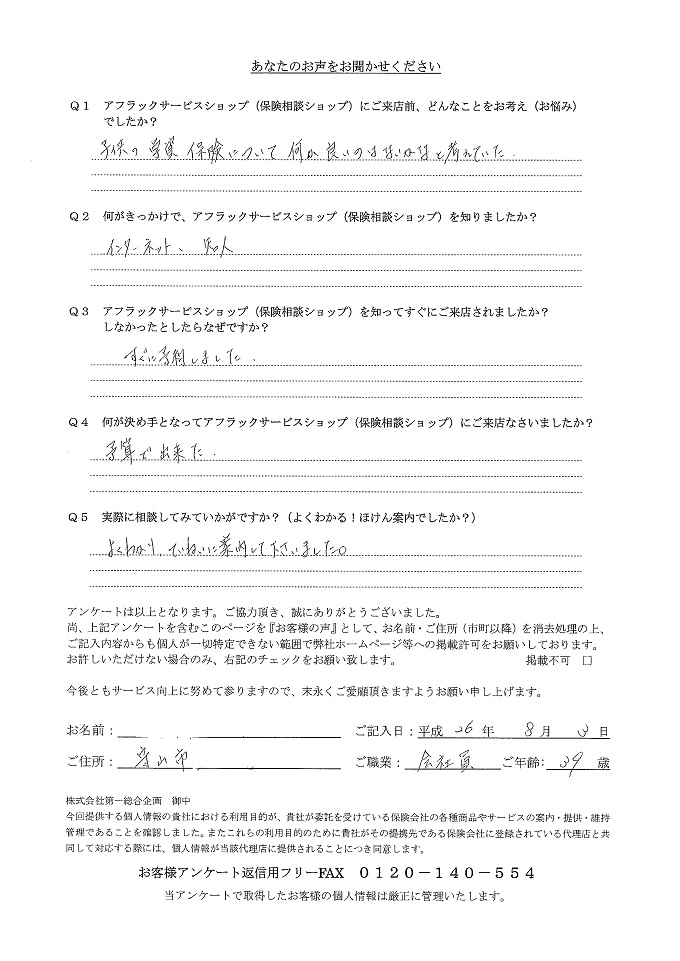 あなたのお声をお聞かせください
Q1 アフラックサービスショップ（保険相談ショップ）にご来店前、どんなことをお考え（お悩み）
でしたか？
子供の学資保険について何か良いのはないかなと考えていた.
Q2 何がきっかけで、アフラックサービスショップ（保険相談ショップ）を知りましたか？
インターネット、知人
Q3 アフラックサービスショップ（保険相談ショップ）を知ってすぐにご来店されましたか？
しなかったとしたらなぜですか？
すぐに予約しました.
Q4 何が決め手となってアフラックサービスショップ（保険相談ショップ）にご来店なさいましたか？
予算で出来た.
Q5 実際に相談してみていかがですか？（よくわかる！ほけん案内でしたか？）
よくわかり、ていねいに案内して下さいました。
アンケートは以上となります。ご協力頂き、誠にありがとうございました。
尚、上記アンケートを含むこのページを『お客様の声』として、お名前・ご住所（市町以降）を消去処理の上、
ご記入内容からも個人が一切特定できない範囲で弊社ホームページ等への掲載許可をお願いしております。
お許しいただけない場合のみ、右記のチェックをお願い致します。 掲載不可 □
今後ともサービス向上に努めて参りますので、末永くご愛顧頂きますようお願い申し上げます。
お名前： ご記入日：平成 26 年 8 月 3 日
ご住所： 守山市 ご職業： 会社員 ご年齢： 39 歳
株式会社第一総合企画 御中
今回提供する個人情報の貴社における利用目的が、貴社が委託を受けている保険会社の各種商品やサービスの案内・提供・維持
管理であることを確認しました。またこれらの利用目的のために貴社がその提携先である保険会社に登録されている代理店と共
同して対応する際には、個人情報が当該代理店に提供されることにつき同意します。
お客様アンケート返信用フリーFAX ０１２０－１４０－５５４
当アンケートで取得したお客様の個人情報は厳正に管理いたします。